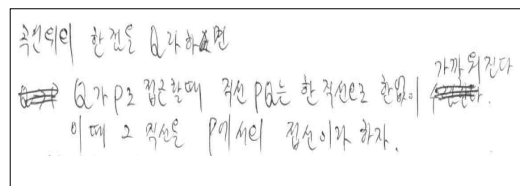 곡선위의 한 점을 Q라 하면
Q가 P로 접근할때 직선 PQ는 한 직선ℓ로 한없이 가까워진다.
이때 그 직선을 P에서의 접선이라 하자.